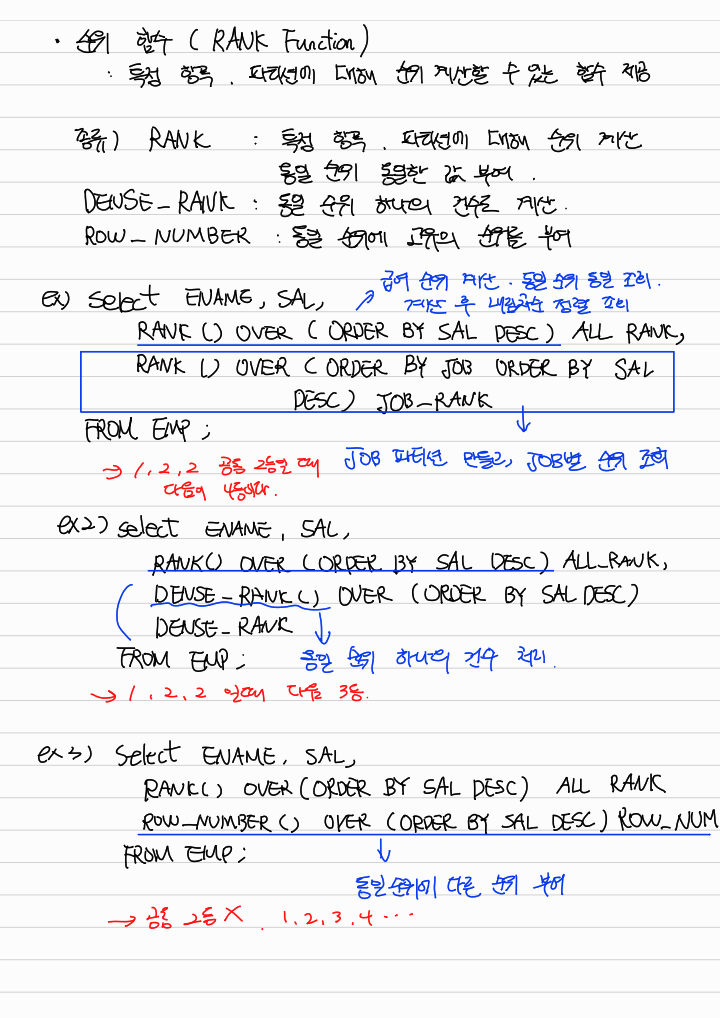 · 순위 함수 ( RANK Function )
: 특정 항목, 파티션에 대해 순위 계산할 수 있는 함수 제공
종류) RANK : 특정 항목, 파티션에 대해 순위 계산
동일 순위 동일한 값 부여.
DENSE_RANK : 동일 순위 하나의 건수로 계산.
ROW_NUMBER : 동일 순위에 고유의 순위를 부여
급여 순위 계산. 동일 순위 동일 조회.
ex) select ENAME, SAL, 계산 후 내림차순 정렬 조회
RANK () OVER ( ORDER BY SAL DESC) ALL RANK,
RANK () OVER ( ORDER BY JOB ORDER BY SAL
DESC) JOB_RANK
FROM EMP ;
JOB 파티션 만들고, JOB별 순위 조회
→ 1, 2, 2 공동 2등일 때
다음이 4등이다.
ex2) select ENAME, SAL,
RANK() OVER (ORDER BY SAL DESC) ALL_RANK,
DENSE_RANK() OVER (ORDER BY SAL DESC)
DENSE_RANK
FROM EMP; 동일 순위 하나의 건수 처리.
→ 1, 2, 2 일때 다음 3등.
ex3) Select ENAME, SAL,
RANK() OVER (ORDER BY SAL DESC) ALL RANK
ROW_NUMBER() OVER (ORDER BY SAL DESC) ROW_NUM
FROM EMP;
동일순위에 다른 순위 부여
→ 공동 2등 X , 1, 2, 3, 4 ...